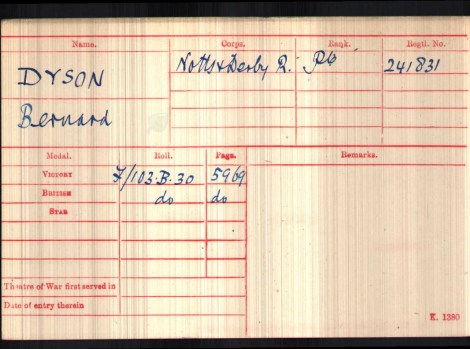 Name. Corps. Rank. Regtl. No.
DYSON Notts & Derby R. Pte 241831
Bernard
Medal. Roll. Page. Remarks.
VICTORY F/103.B.30 5969
BRITISH do do
STAR
Theatre of War first served in
Date of entry therein
K. 1380